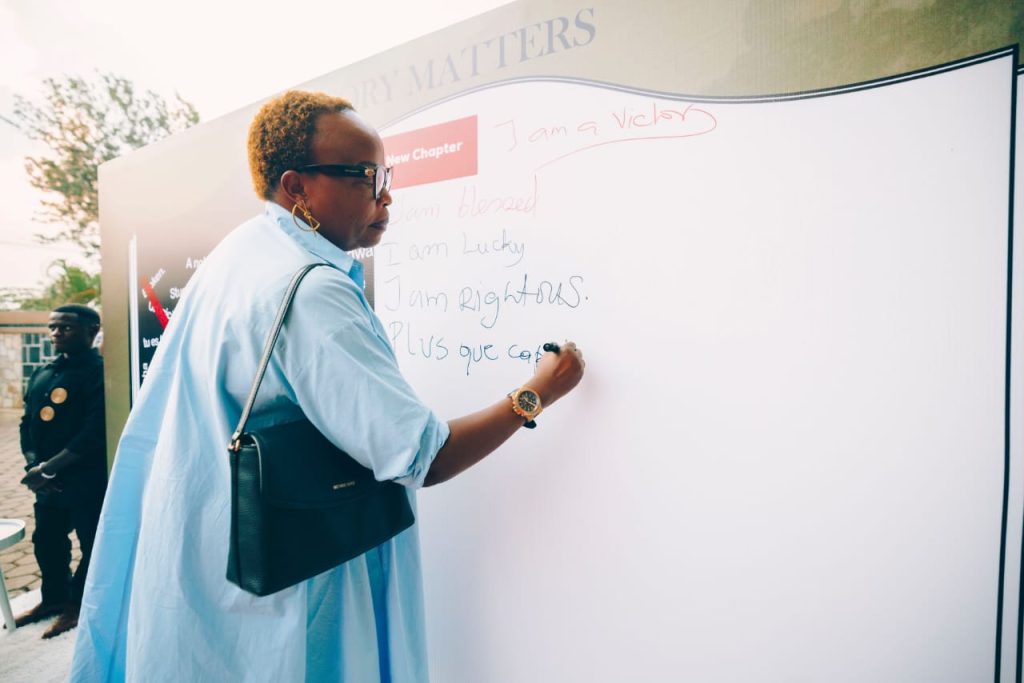 ORY MATTERS
New Chapter
I am a victory
I am blessed
I am Lucky
I am Rightous.
Plus que cap
MICHAEL KORS